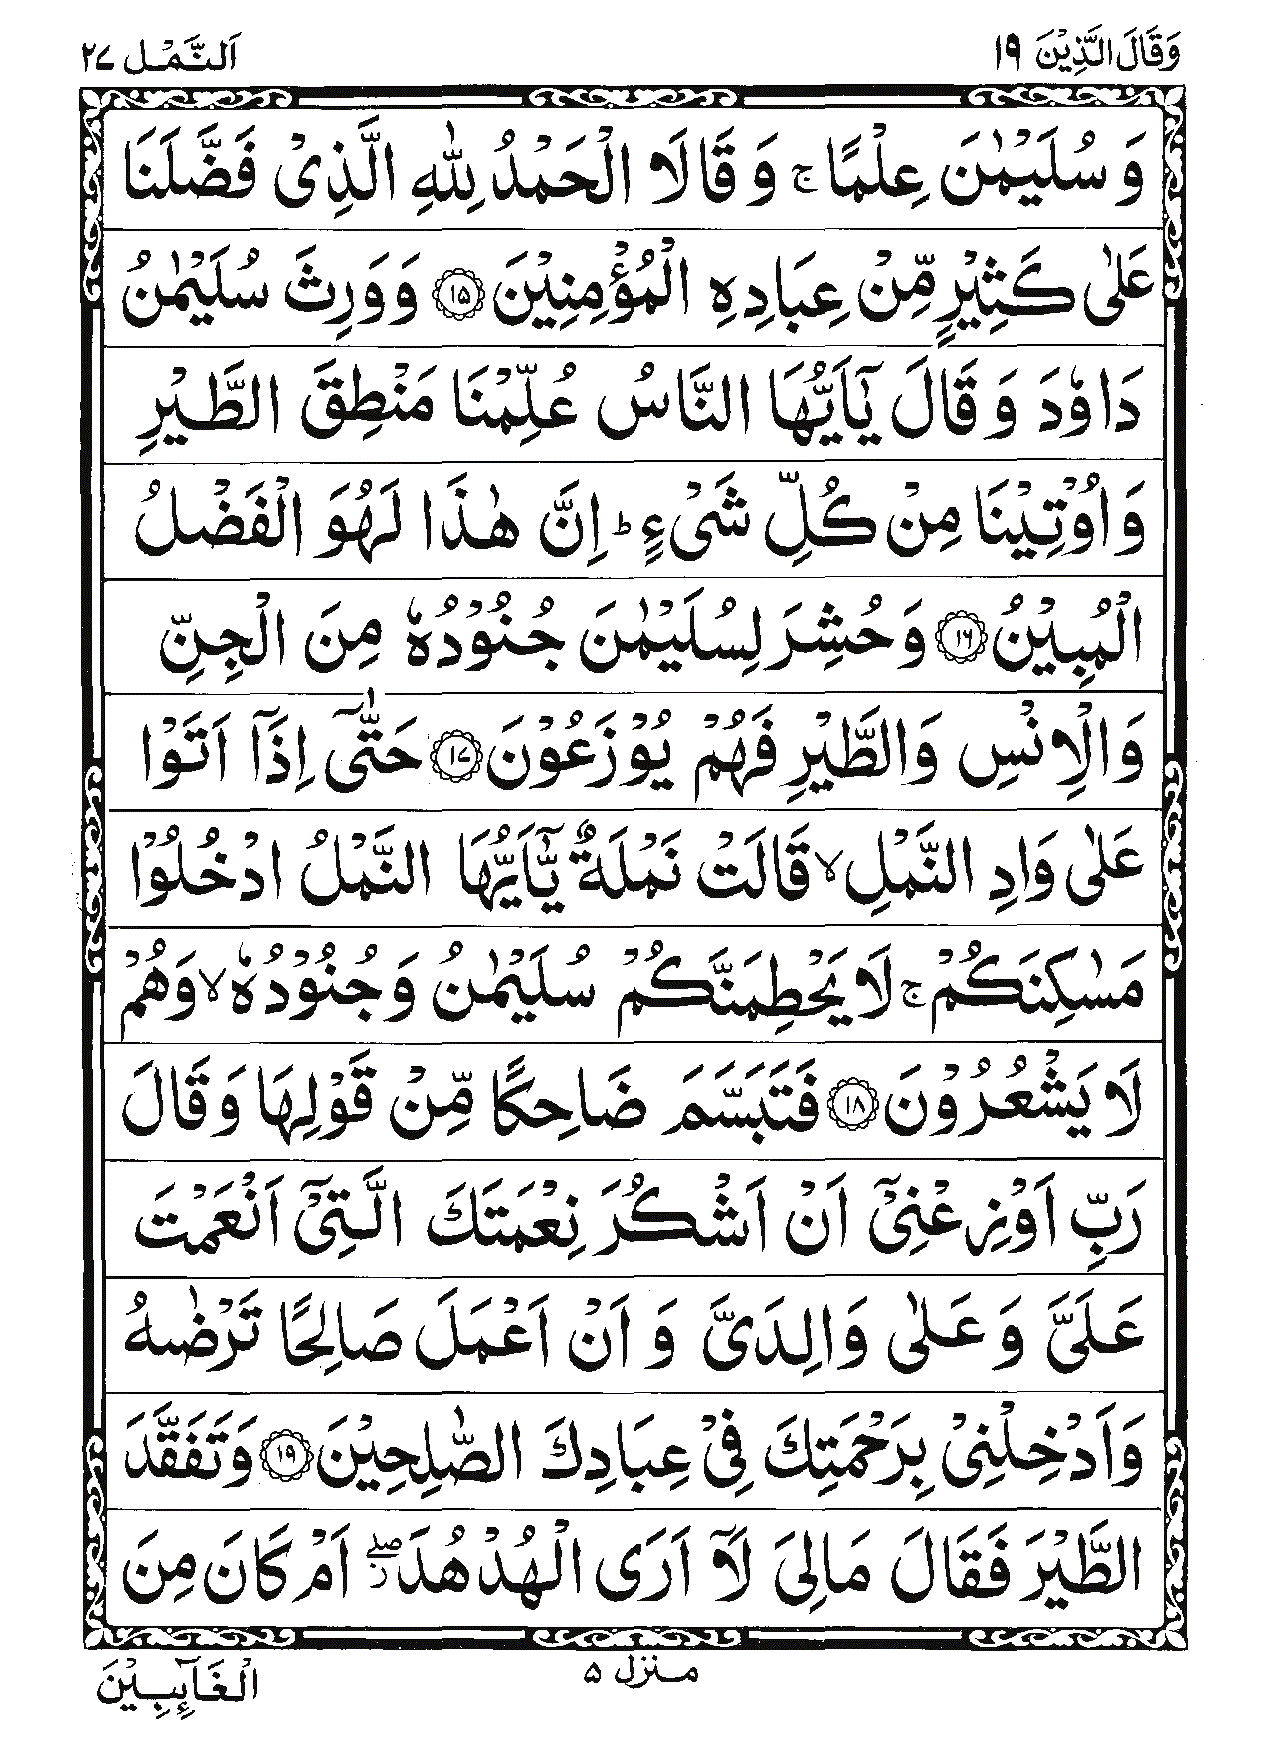 وَقَالَ الَّذِیْنَ ۱۹
اَلنَّمْل ۲۷
وَ سُلَیْمٰنَ عِلْمًا ۚ وَ قَالَا الْحَمْدُ لِلّٰهِ الَّذِیْ فَضَّلَنَا
عَلٰی كَثِیْرٍ مِّنْ عِبَادِهِ الْمُؤْمِنِیْنَ ﴿۱۵﴾ وَ وَرِثَ سُلَیْمٰنُ
دَاوٗدَ وَ قَالَ یٰۤاَیُّهَا النَّاسُ عُلِّمْنَا مَنْطِقَ الطَّیْرِ
وَ اُوْتِیْنَا مِنْ كُلِّ شَیْءٍ ؕ اِنَّ هٰذَا لَهُوَ الْفَضْلُ
الْمُبِیْنُ ﴿۱۶﴾ وَ حُشِرَ لِسُلَیْمٰنَ جُنُوْدُهٗ مِنَ الْجِنِّ
وَ الْاِنْسِ وَ الطَّیْرِ فَهُمْ یُوْزَعُوْنَ ﴿۱۷﴾ حَتّٰۤی اِذَاۤ اَتَوْا
عَلٰی وَادِ النَّمْلِ ۙ قَالَتْ نَمْلَةٌ یّٰۤاَیُّهَا النَّمْلُ ادْخُلُوْا
مَسٰكِنَكُمْ ۚ لَا یَحْطِمَنَّكُمْ سُلَیْمٰنُ وَ جُنُوْدُهٗ ۙ وَ هُمْ
لَا یَشْعُرُوْنَ ﴿۱۸﴾ فَتَبَسَّمَ ضَاحِكًا مِّنْ قَوْلِهَا وَ قَالَ
رَبِّ اَوْزِعْنِیْۤ اَنْ اَشْكُرَ نِعْمَتَكَ الَّتِیْۤ اَنْعَمْتَ
عَلَیَّ وَ عَلٰی وَالِدَیَّ وَ اَنْ اَعْمَلَ صَالِحًا تَرْضٰىهُ
وَ اَدْخِلْنِیْ بِرَحْمَتِكَ فِیْ عِبَادِكَ الصّٰلِحِیْنَ ﴿۱۹﴾ وَ تَفَقَّدَ
الطَّیْرَ فَقَالَ مَا لِیَ لَاۤ اَرَی الْهُدْهُدَ ۖ اَمْ كَانَ مِنَ
منزل ۵
الْغَآىِٕبِیْنَ